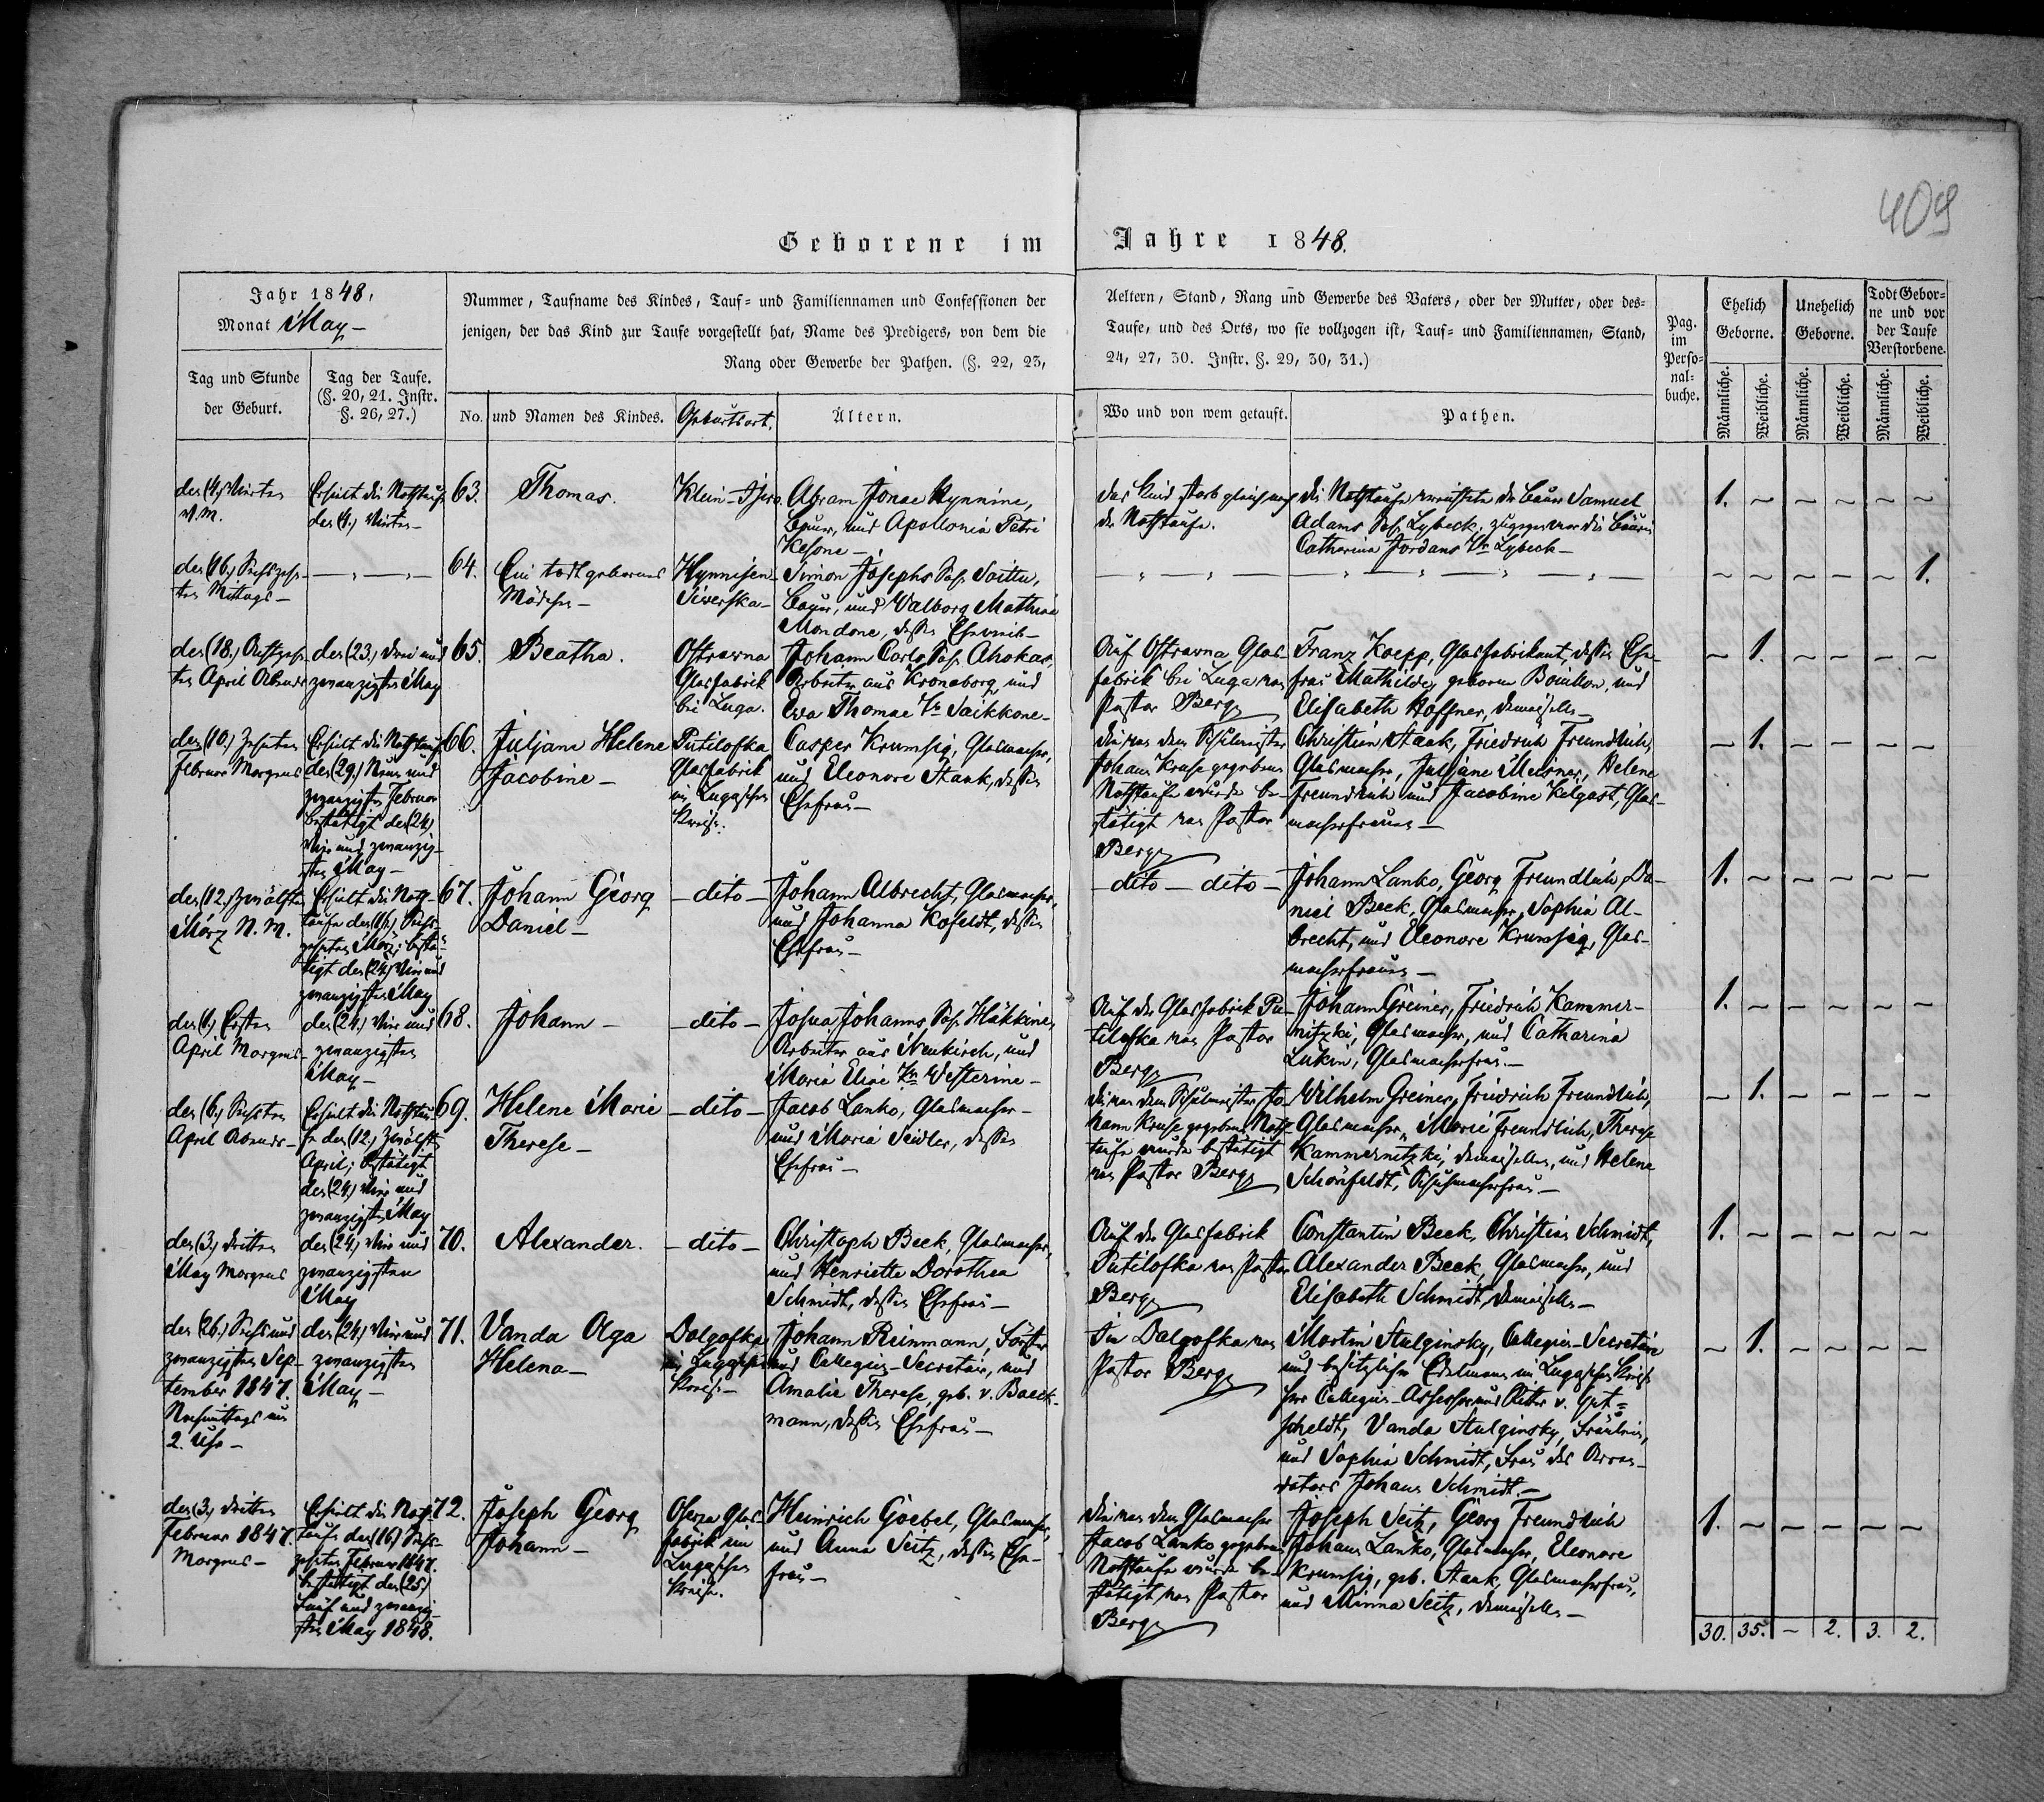 409
Geborene im Jahre 1848.
Jahr 1848,
Monat May –
Nummer, Taufname des Kindes, Tauf- und Familiennamen und Confessionen der
jenigen, der das Kind zur Taufe vorgestellt hat, Name des Predigers, von dem die
Rang oder Gewerbe der Pathen. (§. 22, 23,
Aeltern, Stand, Rang und Gewerbe des Vaters, oder der Mutter, oder des-
Taufe, und des Orts, wo sie vollzogen ist, Tauf- und Familiennamen, Stand,
24, 27, 30. Instr. §. 29, 30, 31.)
Tag und Stunde
der Geburt.
Tag der Taufe.
(§. 20, 21. Instr.
§. 26, 27.)
No.
und Namen des Kindes.
Geburtsort.
Ältern.
Wo und von wem getauft.
Pathen.
Pag.
im
Perso-
nal-
buche.
Ehelich
Geborne.
Unehelich
Geborne.
Todt Gebor-
ne und vor
der Taufe
Verstorbene.
Männliche.
Weibliche.
Männliche.
Weibliche.
Männliche.
Weibliche.
den (4.) Vierten
V. M.
Erhielt die Nothtaufe
den (4.) Vierten –
63.
Thomas.
Klein-
Abram Jonae Kynnine,
Bauer, und Apollonia Petri
Kesone –
das Kind starb gleich nach
der Nothtaufe.
die Nothtaufe verrichtete der Bauer Samuel
Adams Sohn Lybeck, zugegen war die Bäuerin
Catharina Jordans Tr. Lybeck –
1. ~ ~ ~ ~ ~
den (16.) Sechszehn-
ten Mittags –
– „ – „ –
64.
Ein todtgeborenes
Mädchen –
Hynnisen-
Siwerska –
Simon Josephs Sohn Soittu,
Bauer, und Walborg Mathiae
Mondone, dessen Eheweib –
– „ – „ –
– „ – „ – „ – „ –
~ ~ ~ ~ ~ 1.
den (18.) Achtzehn-
ten April Abends
den (23.) Drei und
zwanzigsten May
65.
Beatha.
Ostrowna
Glasfabrik
bei Luga.
Johann Carls Sohn Ahokas,
Arbeiter aus Kronoborg, und
Eva Thomae Tr. Saikkone –
Auf Ostrowna Glas-
fabrik bei Luga von
Pastor Berg
Franz Koepp, Glasfabrikant, dessen Ehe-
frau Mathilde, geborene Bouillon, und
Elisabeth Hoffner, Demoiselle –
~ 1. ~ ~ ~ ~
den (10.) Zehnten
Februar Morgens
Erhielt die Nothtaufe
den (29.) Neun und
zwanzigsten Februar
bestätigt den (24.)
Vier und zwanzig-
sten May –
66.
Juljane Helene
Jacobine –
Putilofka
Glasfabrik
im Lugaschen
Kreise.
Casper Krumsig, Glasmacher,
und Eleonore Staak, dessen
Ehefrau –
Die von dem Schulmeister
Johann Kruse gegebene
Nothtaufe wurde be-
stätigt von Pastor
Berg
Christian Staak, Friedrich Freundlich,
Glasmacher, Juljane Meisner, Helene
Freundlich und Jacobine Kelgast, Glas-
macherfrauen –
~ 1. ~ ~ ~ ~
den (12.) Zwölften
März N. M.
Erhielt die Noth-
taufe den (16.) Sechs-
zehnten März; bestä-
tigt den (24.) Vier und
zwanzigsten May
67.
Johann Georg
Daniel –
– dito –
Johann Albrecht, Glasmacher,
und Johanna Kofeldt, dessen
Ehefrau –
– dito – dito –
Johann Lanko, Georg Freundlich, Da-
niel Beck, Glasmacher, Sophia Al-
brecht, und Eleonore Krumsig, Glas-
macherfrauen –
1. ~ ~ ~ ~ ~
den (1.) Ersten
April Morgens –
den (24.) Vier und
zwanzigsten
May –
68.
Johann –
– dito –
Josua Johanns Sohn Häkkine,
Arbeiter aus Neukirch, und
Maria Eliae Tr. Westerine –
Auf der Glasfabrik Pu-
tilofka von Pastor
Berg
Johann Greiner, Friedrich Kammer-
nitzki, Glasmacher, und Catharina
Lukin, Glasmacherfrau. –
1. ~ ~ ~ ~ ~
den (6.) Sechsten
April Abends –
Erhielt die Nothtau-
fe den (12.) Zwölften
April; bestätigt
den (24.) Vier und
zwanzigsten May
69.
Helene Marie
Therese –
– dito –
Jacob Lanko, Glasmacher –
und Maria Seidler, dessen
Ehefrau –
Die von dem Schulmeister Jo-
hann Kruse gegebene Noth-
taufe wurde bestätigt
von Pastor Berg
Wilhelm Greiner, Friedrich Freundlich,
Glasmacher, Marie Freundlich, Therese
Kammernitzki, Demoisellen, und Helene
Schönfeldt, Schuhmacherfrau –
~ 1. ~ ~ ~ ~
den (3.) Dritten
May Morgens
den (24.) Vier und
zwanzigsten
May
70.
Alexander.
– dito –
Christoph Beck, Glasmacher,
und Henriette Dorothea
Schmidt, dessen Ehefrau –
Auf der Glasfabrik
Putilofka von Pastor
Berg
Constantin Beck, Christian Schmidt,
Alexander Beck, Glasmacher, und
Elisabeth Schmidt, Demoiselle –
1. ~ ~ ~ ~ ~
den (26.) Sechs und
zwanzigsten Sep-
tember 1847.
Nachmittags um
2. Uhr –
den (24.) Vier und
zwanzigsten
May –
71.
Vanda Olga
Helena –
Dolgofka
im Lugaschen
Kreise –
Johann Reinmann, Förster
und Collegien-Secretair, und
Amalie Therese, geb. v. Boeck-
mann, dessen Ehefrau –
In Dolgofka von
Pastor Berg
Martin Stulginsky, Collegien-Secretaire
und besitzlicher Edelmann im Lugaschen Kreise
Herr Collegien-Assessor und Ritter v. Gut-
scheldt, Vanda Stulginsky, Fräulein,
und Sophia Schmidt, Frau des Arren-
dators Johann Schmidt. –
~ 1. ~ ~ ~ ~
den (3.) Dritten
Februar 1847.
Morgens –
Erhielt die Noth-
taufe den (16) Sechs-
zehnten Februar 1847.
bestätigt den (25)
Fünf und zwanzig-
sten May 1848.
72.
Joseph Georg
Johann –
Glas-
fabrik im
Lugaschen
Kreise.
Heinrich Goebel, Glasmacher,
und Anna Seitz, dessen Ehe-
frau –
Die von dem Glasmacher
Jacob Lanko gegebene
Nothtaufe wurde be-
stätigt von Pastor
Berg
Joseph Seitz, Georg Freundlich
Johann Lanko, Glasmacher, Eleonore
Krumsig, geb. Staak, Glasmacherfrau,
und Minna Seitz, Demoiselle –
1. ~ ~ ~ ~ ~
30. 35. – 2. 3. 2.